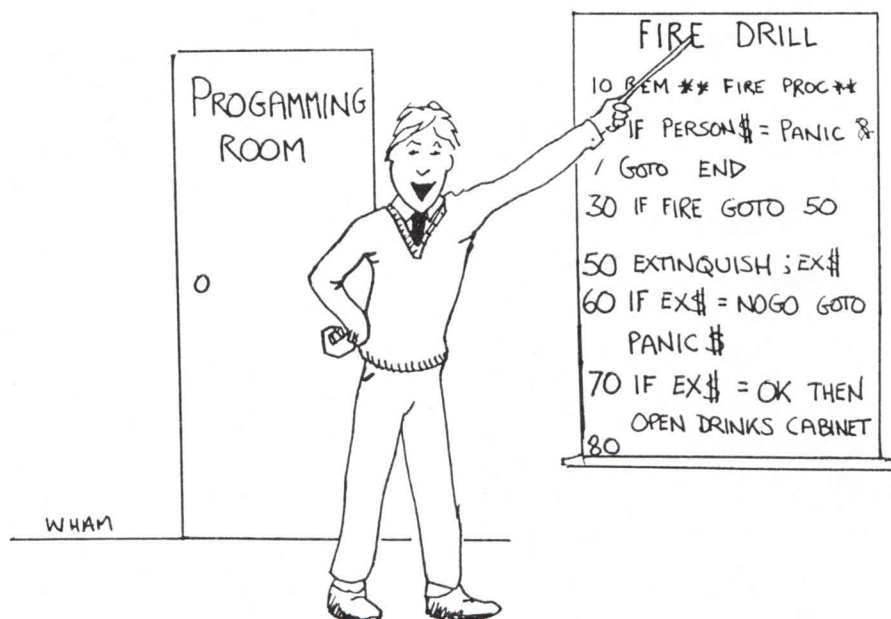 PROGAMMING
ROOM
WHAM
FIRE DRILL
10 REM ** FIRE PROC **
IF PERSON$ = PANIC &
GOTO END
30 IF FIRE GOTO 50
50 EXTINQUISH ; EX$
60 IF EX$ = NOGO GOTO
PANIC $
70 IF EX$ = OK THEN
OPEN DRINKS CABINET
80